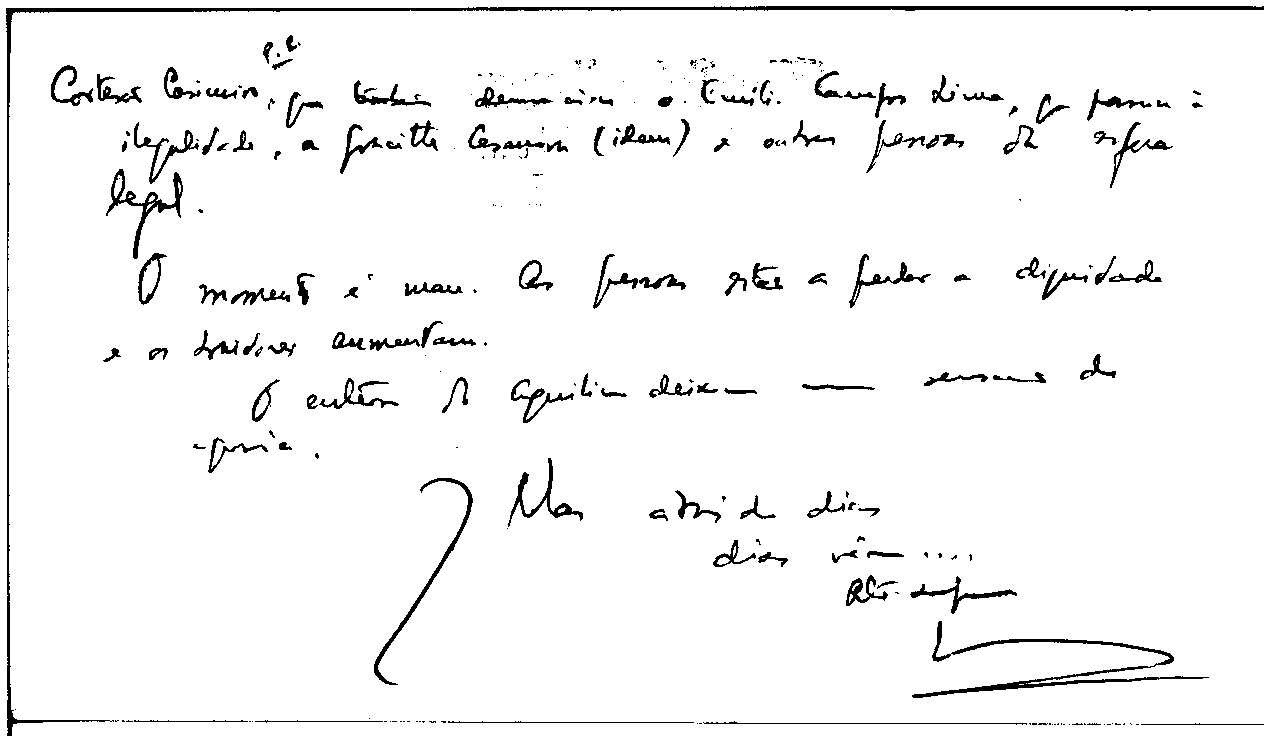 P.C.
Cortesão Casimiro, que também denunciou o Emílio Campos Lima, q passou à
ilegalidade, a Graciette Casanova (idem) e outras pessoas da esfera
legal.
O momento é mau. As pessoas estão a perder a dignidade
e os traidores aumentam.
O enterro do Aquilino deixou
Mas atrás de dias
dias vêm ....